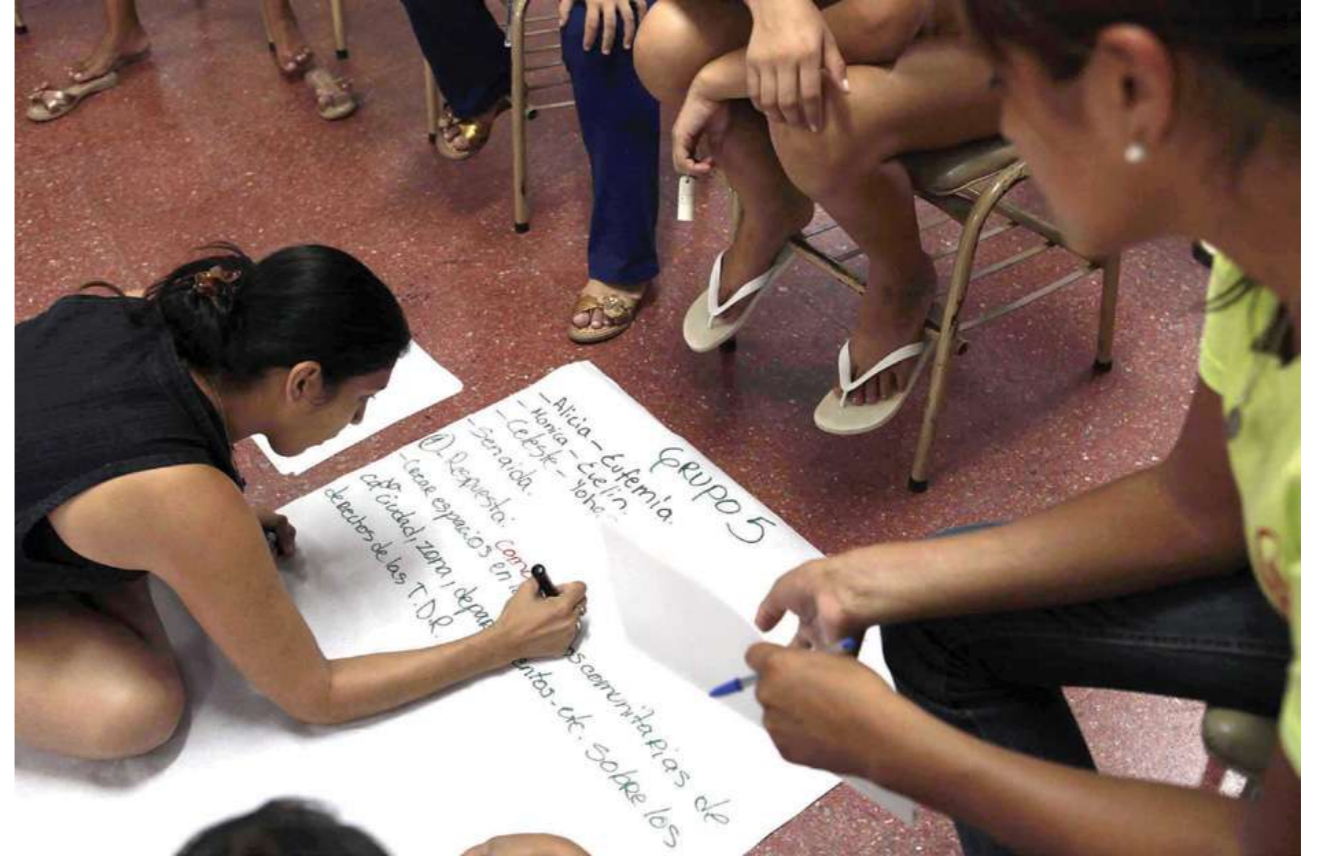 GRUPO 5
-Alicia - Eufemia.
-Monica - Evelin.
-Celeste - Yohe
-Senaida.
① Respuesta: Como
-Crear espacios en comunitarias de
ciudad, zona, depar entos - etc. Sobre los
derechos de las T.D.R.